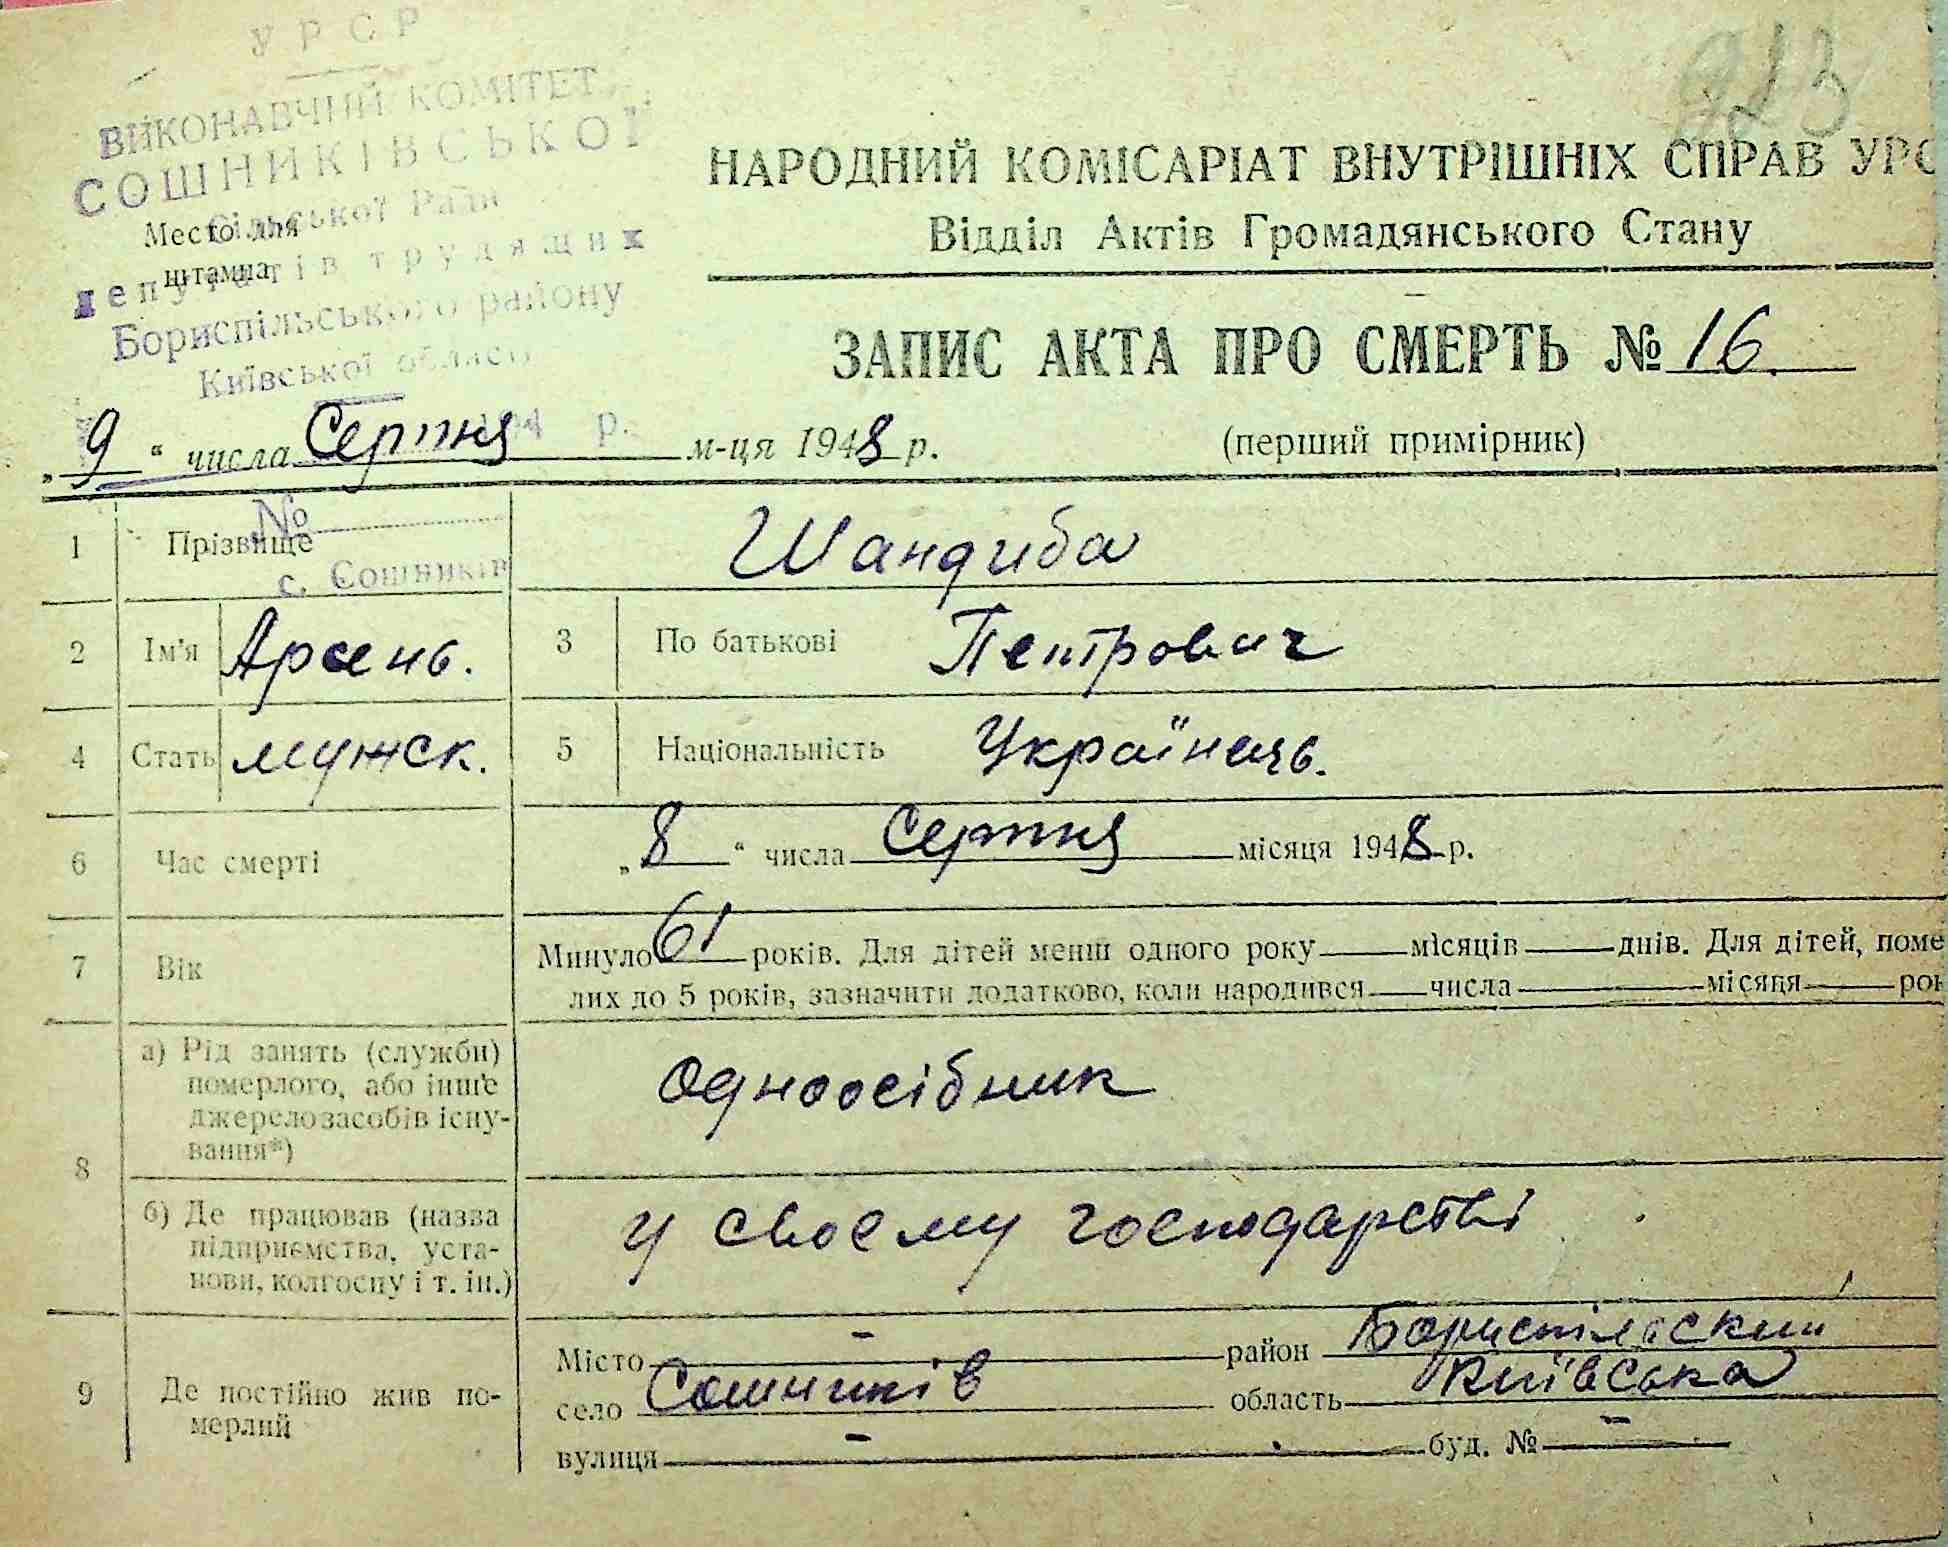 У Р С Р
ВИКОНАВЧИЙ КОМІТЕТ
СОШНИКІВСЬКОЇ
Сільської Ради
депутатів трудящих
Бориспільського району
Київської області
194 р.
№
с. Сошників
Место для
штампа
223
НАРОДНИЙ КОМІСАРІАТ ВНУТРІШНІХ СПРАВ УРС
Відділ Актів Громадянського Стану
ЗАПИС АКТА ПРО СМЕРТЬ № 16.
„9“ числа Серпня м-ця 1948 р.
(перший примірник)
1 Прізвище Шандиба
2 Ім'я Арсень. 3 По батькові Петрович
4 Стать мужск. 5 Національність Українець.
6 Час смерті „8“ числа Серпня місяця 1948 р.
7 Вік Минуло 61 років. Для дітей менш одного року місяців днів. Для дітей, поме
лих до 5 років, зазначити додатково, коли народився числа місяця рок
8 а) Рід занять (служби)
померлого, або інше
джерело засобів існу-
вання*)
Одноосібник
б) Де працював (назва
підприємства, уста-
нови, колгоспу і т. ін.)
у своєму господарстві
9 Де постійно жив по-
мерлий
Місто – район Бориспільский
село Сошників область Київська
вулиця – буд. № –